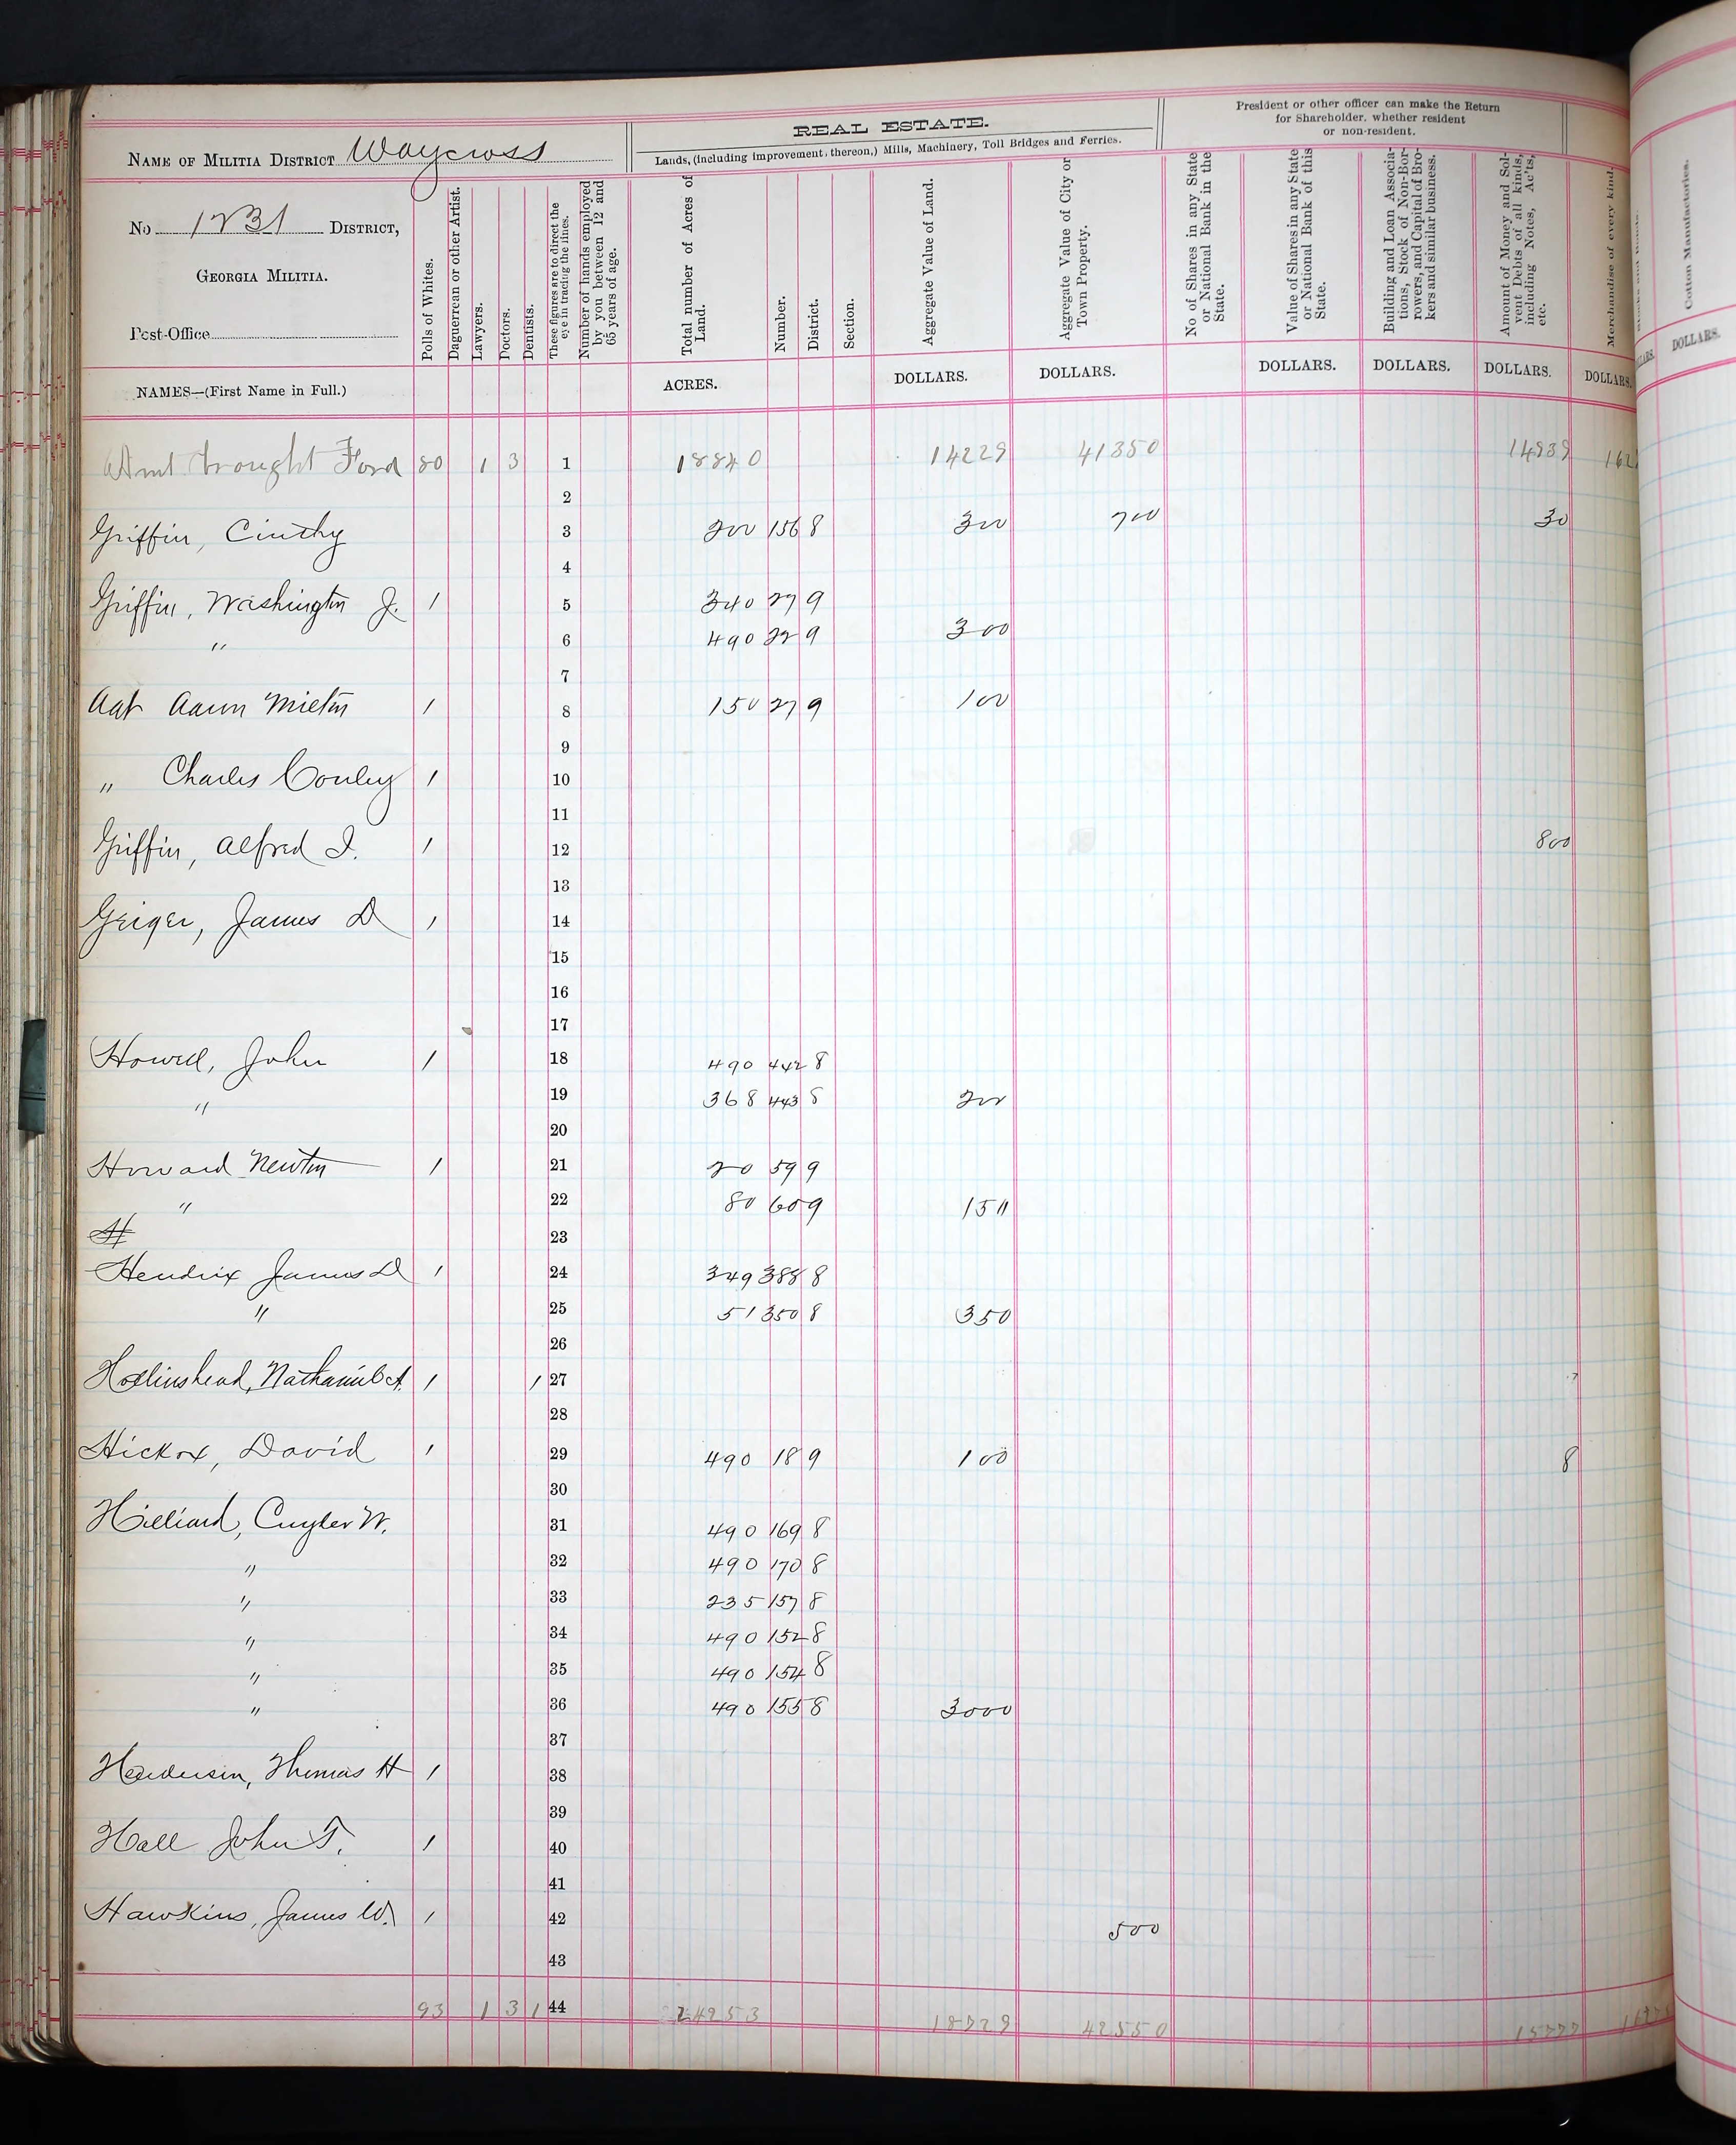 NAME OF MILITIA DISTRICT Waycross
No 1231 DISTRICT,
GEORGIA MILITIA.
Post-Office
NAMES—(First Name in Full.)
Polls of Whites.
Daguerrean or other Artist.
Lawyers.
Doctors.
Dentists.
These figures are to direct the eye in tracing the lines.
Number of hands employed by you between 12 and 65 years of age.
REAL ESTATE.
Lands, (including improvement, thereon,) Mills, Machinery, Toll Bridges and Ferries.
Total number of Acres of Land.
Number.
District.
Section.
Aggregate Value of Land.
Aggregate Value of City or Town Property.
President or other officer can make the Return
for Shareholder, whether resident
or non-resident.
No of Shares in any State or National Bank in the State.
Value of Shares in any State or National Bank of this State.
Building and Loan Associations, Stock of Non-Borrowers, and Capital of Brokers and similar business.
Amount of Money and Solvent Debts of all kinds, including Notes, Ac'ts, etc.
Merchandise of every kind.
Cotton Manufactories.
ACRES. DOLLARS. DOLLARS. DOLLARS. DOLLARS. DOLLARS. DOLLARS. DOLLARS.
Amt brought Ford 80 1 3 1 18840 14229 41350 14939 162
2
Griffin, Cinthy 3 200 156 8 300 700 30
4
Griffin, Washington J. 1 5 340 27 9
" 6 490 22 9 300
7
Agt Aaron Mieltn 1 8 150 27 9 100
9
" Charles Conley 1 10
11
Griffin, Alfred I. 1 12 800
13
Geiger, James D 1 14
15
16
17
Howell, John 1 18 490 442 8
" 19 368 443 8 200
20
Howard Newton 1 21 20 59 9
" 22 80 60 9 150
H 23
Hendrix James D 1 24 349 388 8
" 25 51 350 8 350
26
Hollinshead, Nathaniel A. 1 1 27
28
Hickox, David 1 29 490 18 9 100 8
30
Hilliard, Cuyler W. 31 490 169 8
" 32 490 170 8
" 33 235 157 8
" 34 490 152 8
" 35 490 154 8
" 36 490 155 8 3000
37
Henderson, Thomas H 1 38
39
Hall John T. 1 40
41
Hawkins, James W. 1 42 500
43
93 1 3 1 44 24253 18729 42550 15777